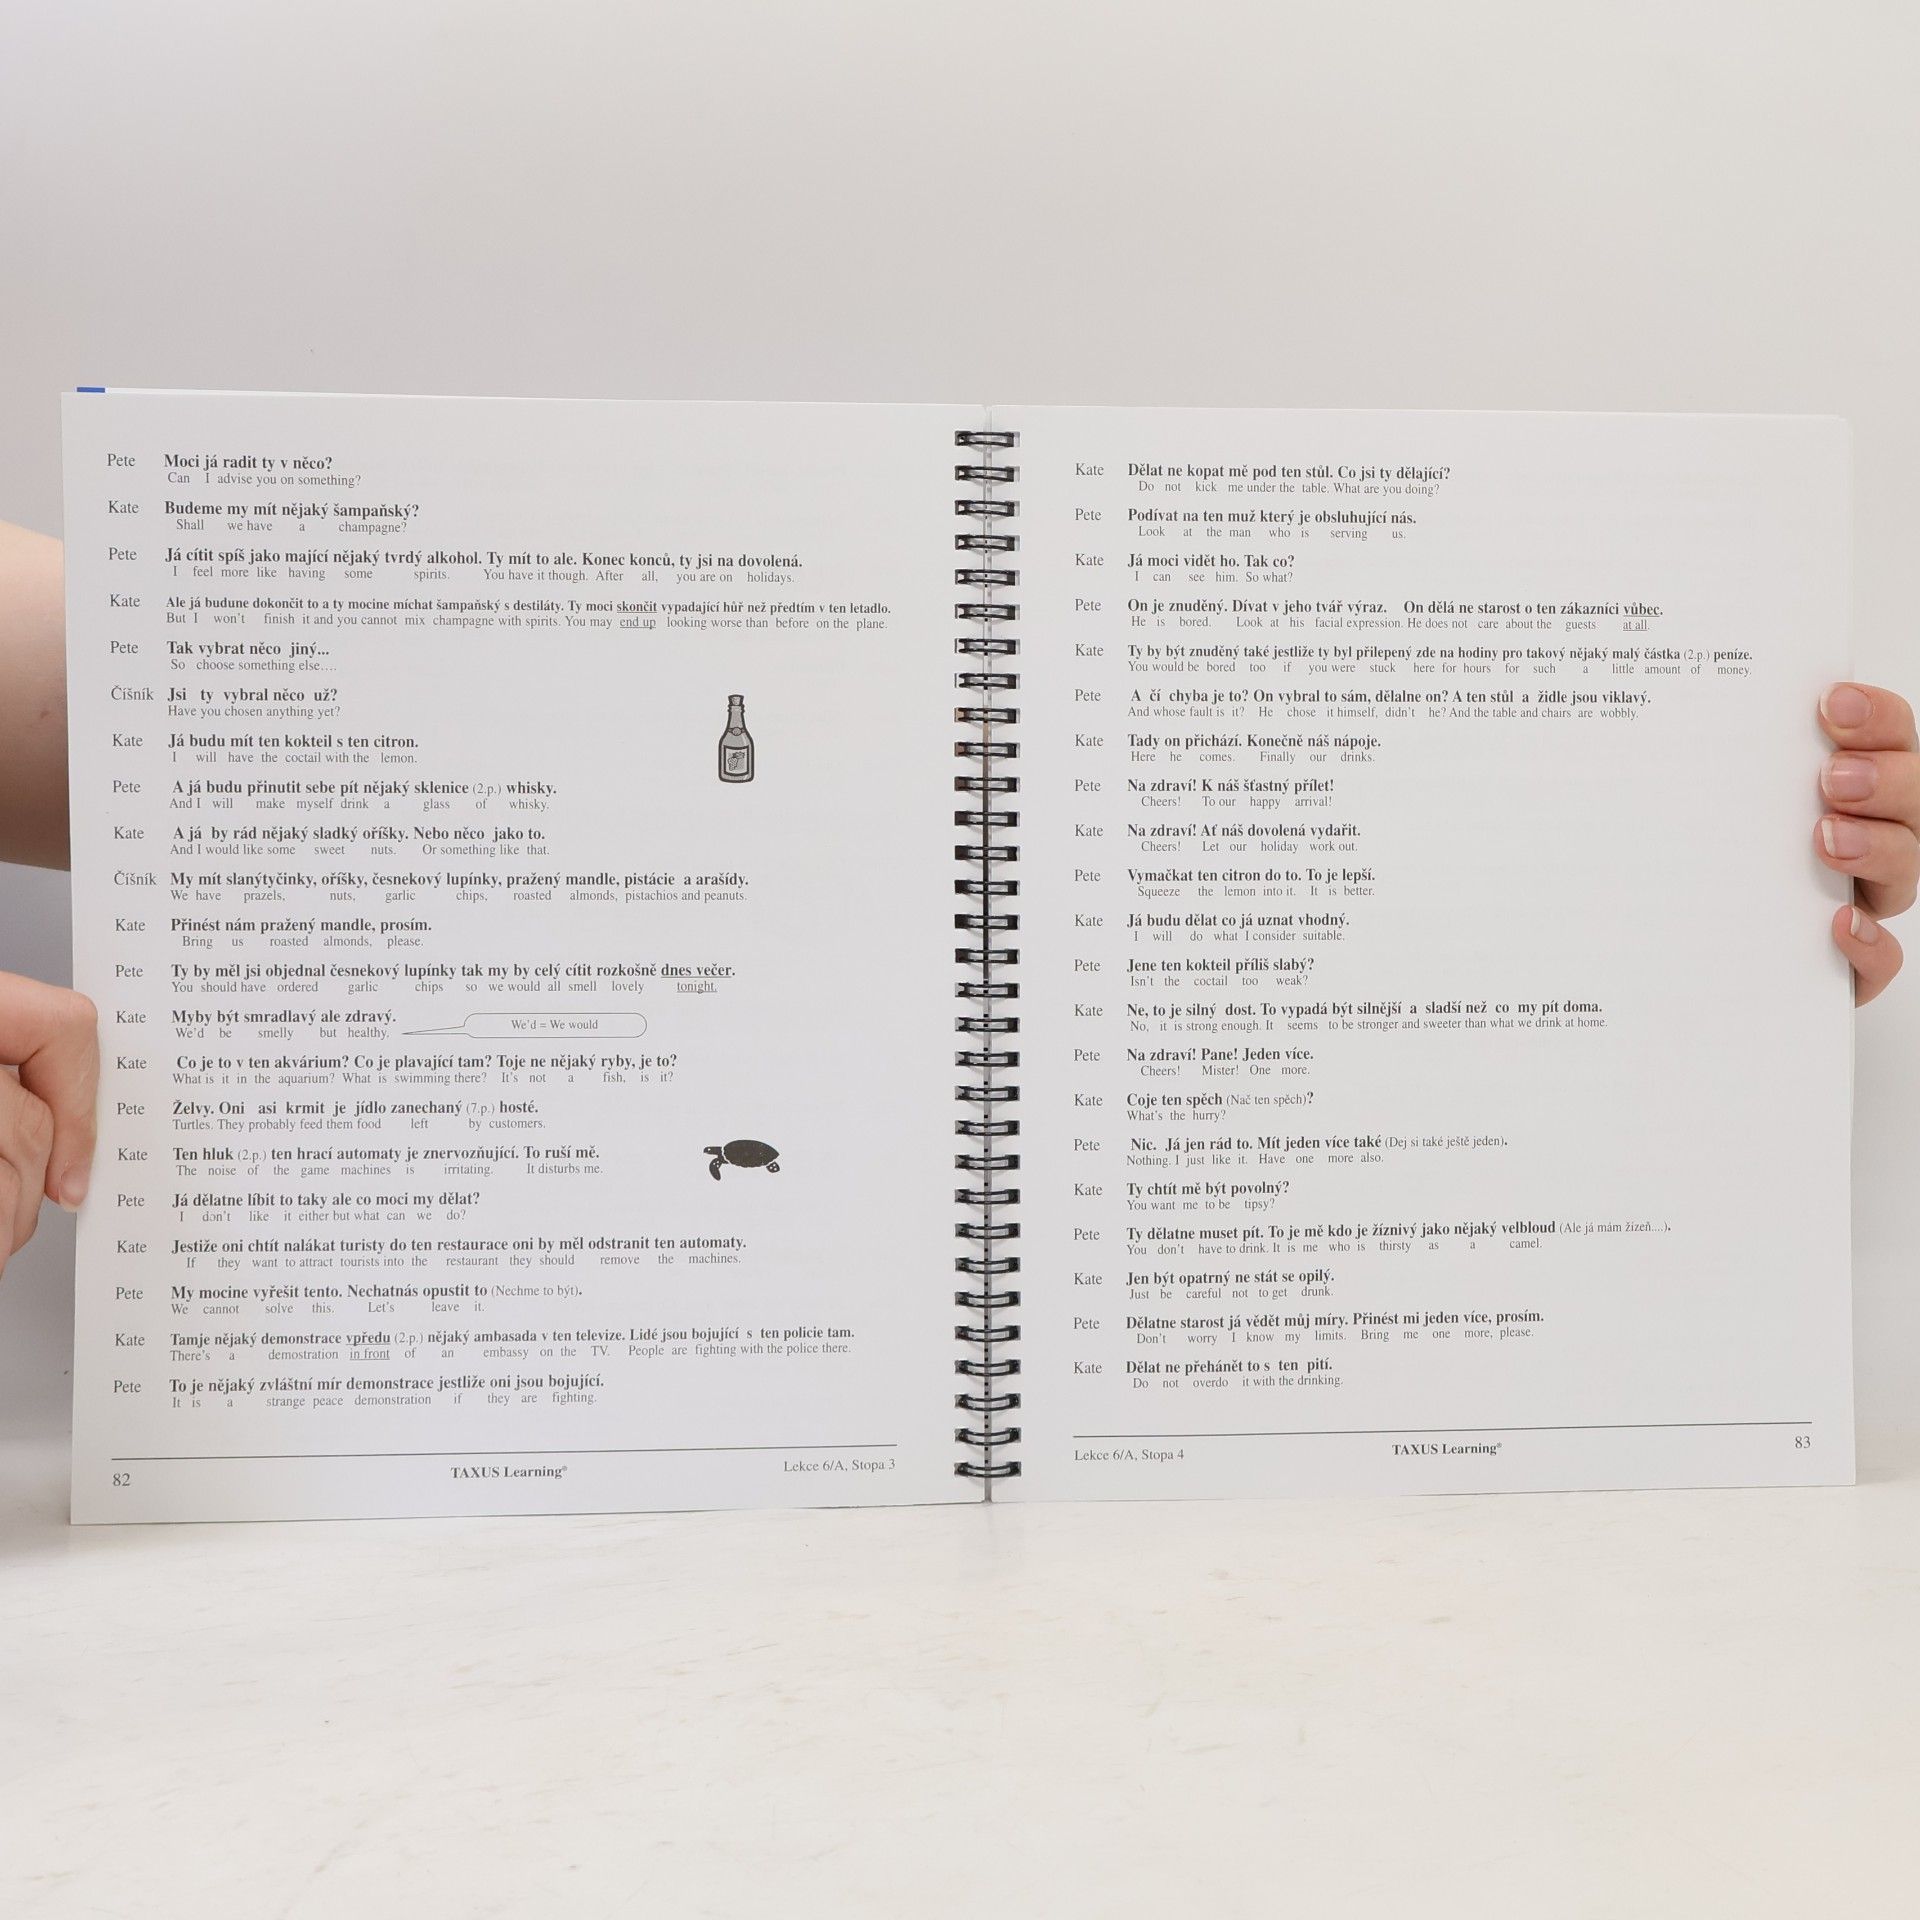 Pete Moci já radit ty v něco?
Can I advise you on something?
Kate Budeme my mít nějaký šampaňský?
Shall we have a champagne?
Pete Já cítit spíš jako mající nějaký tvrdý alkohol. Ty mít to ale. Konec konců, ty jsi na dovolená.
I feel more like having some spirits. You have it though. After all, you are on holidays.
Kate Ale já budune dokončit to a ty mocine míchat šampaňský s destiláty. Ty moci skončit vypadající hůř než předtím v ten letadlo.
But I won't finish it and you cannot mix champagne with spirits. You may end up looking worse than before on the plane.
Pete Tak vybrat něco jiný...
So choose something else....
Číšník Jsi ty vybral něco už?
Have you chosen anything yet?
Kate Já budu mít ten kokteil s ten citron.
I will have the coctail with the lemon.
Pete A já budu přinutit sebe pít nějaký sklenice (2.p.) whisky.
And I will make myself drink a glass of whisky.
Kate A já by rád nějaký sladký oříšky. Nebo něco jako to.
And I would like some sweet nuts. Or something like that.
Číšník My mít slanýtyčinky, oříšky, česnekový lupínky, pražený mandle, pistácie a arašídy.
We have prazels, nuts, garlic chips, roasted almonds, pistachios and peanuts.
Kate Přinést nám pražený mandle, prosím.
Bring us roasted almonds, please.
Pete Ty by měl jsi objednal česnekový lupínky tak my by celý cítit rozkošně dnes večer.
You should have ordered garlic chips so we would all smell lovely tonight.
Kate Myby být smradlavý ale zdravý.
We'd be smelly but healthy.
We'd = We would
Kate Co je to v ten akvárium? Co je plavající tam? Toje ne nějaký ryby, je to?
What is it in the aquarium? What is swimming there? It's not a fish, is it?
Pete Želvy. Oni asi krmit je jídlo zanechaný (7.p.) hosté.
Turtles. They probably feed them food left by customers.
Kate Ten hluk (2.p.) ten hrací automaty je znervozňující. To ruší mě.
The noise of the game machines is irritating. It disturbs me.
Pete Já dělatne líbit to taky ale co moci my dělat?
I don't like it either but what can we do?
Kate Jestiže oni chtít nalákat turisty do ten restaurace oni by měl odstranit ten automaty.
If they want to attract tourists into the restaurant they should remove the machines.
Pete My mocine vyřešit tento. Nechatnás opustit to (Nechme to být).
We cannot solve this. Let's leave it.
Kate Tamje nějaký demonstrace vpředu (2.p.) nějaký ambasada v ten televize. Lidé jsou bojující s ten policie tam.
There's a demostration in front of an embassy on the TV. People are fighting with the police there.
Pete To je nějaký zvláštní mír demonstrace jestliže oni jsou bojující.
It is a strange peace demonstration if they are fighting.
82 TAXUS Learning® Lekce 6/A, Stopa 3
Kate Dělat ne kopat mě pod ten stůl. Co jsi ty dělající?
Do not kick me under the table. What are you doing?
Pete Podívat na ten muž který je obsluhující nás.
Look at the man who is serving us.
Kate Já moci vidět ho. Tak co?
I can see him. So what?
Pete On je znuděný. Dívat v jeho tvář výraz. On dělá ne starost o ten zákazníci vůbec.
He is bored. Look at his facial expression. He does not care about the guests at all.
Kate Ty by být znuděný také jestliže ty byl přilepený zde na hodiny pro takový nějaký malý částka (2.p.) peníze.
You would be bored too if you were stuck here for hours for such a little amount of money.
Pete A čí chyba je to? On vybral to sám, dělalne on? A ten stůl a židle jsou viklavý.
And whose fault is it? He chose it himself, didn't he? And the table and chairs are wobbly.
Kate Tady on přichází. Konečně náš nápoje.
Here he comes. Finally our drinks.
Pete Na zdraví! K náš šťastný přílet!
Cheers! To our happy arrival!
Kate Na zdraví! Ať náš dovolená vydařit.
Cheers! Let our holiday work out.
Pete Vymačkat ten citron do to. To je lepší.
Squeeze the lemon into it. It is better.
Kate Já budu dělat co já uznat vhodný.
I will do what I consider suitable.
Pete Jene ten kokteil příliš slabý?
Isn't the coctail too weak?
Kate Ne, to je silný dost. To vypadá být silnější a sladší než co my pít doma.
No, it is strong enough. It seems to be stronger and sweeter than what we drink at home.
Pete Na zdraví! Pane! Jeden více.
Cheers! Mister! One more.
Kate Coje ten spěch (Nač ten spěch)?
What's the hurry?
Pete Nic. Já jen rád to. Mít jeden více také (Dej si také ještě jeden).
Nothing. I just like it. Have one more also.
Kate Ty chtít mě být povolný?
You want me to be tipsy?
Pete Ty dělatne muset pít. To je mě kdo je žíznivý jako nějaký velbloud (Ale já mám žízeň....).
You don't have to drink. It is me who is thirsty as a camel.
Kate Jen být opatrný ne stát se opilý.
Just be careful not to get drunk.
Pete Dělatne starost já vědět můj míry. Přinést mi jeden více, prosím.
Don't worry I know my limits. Bring me one more, please.
Kate Dělat ne přehánět to s ten pití.
Do not overdo it with the drinking.
Lekce 6/A, Stopa 4 TAXUS Learning® 83